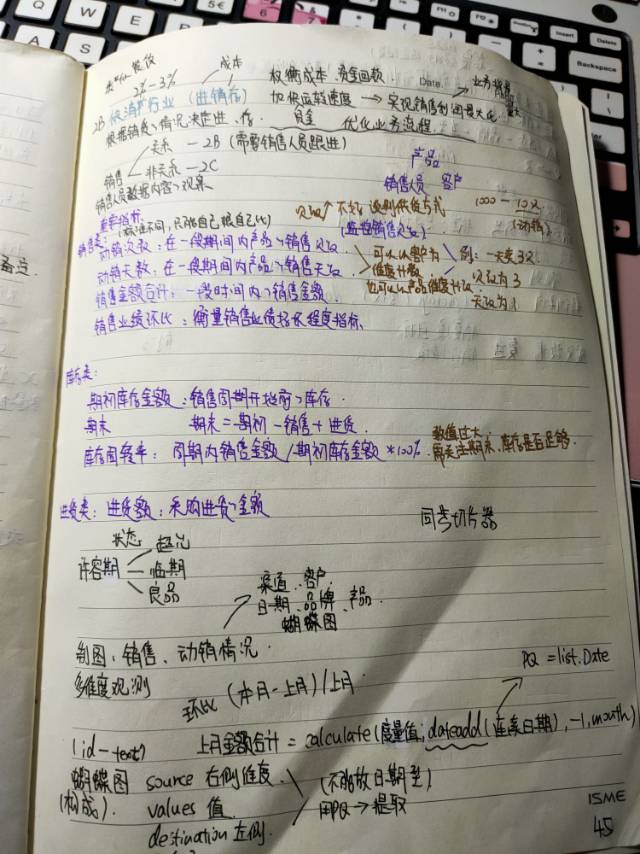 成本
2%-3%
权衡成本 资金回款 Date
2B 快消行业（进销存）
加快运转速度 → 实现销售利润最大化
根据销售情况决定进、存. 资金 优化业务流程
关系 — 2B（需要销售人员跟进）
销售
非关系 — 2C
产品
销售人员 客户
销售人员数据内容
重要指标:
(标准不同,只能自己跟自己比)
销售类:
动销次数: 在一段期间内产品销售次数
(监控销售次数)
动销天数: 在一段期间内产品销售天数
可以以客户为维度计数
也可以以产品维度计数
例: 一天卖3次
次数为3
天数为1
1000 — 10次
(动销)
销售金额合计: 一段时间内销售金额.
销售业绩环比: 衡量销售业绩增长程度指标.
库存类:
期初库存金额: 销售周期开始前库存
期末 期末=期初-销售+进货.
库存周转率: 周期内销售金额/期初库存金额*100%.
数值过大
需关注期末、库存是否足够.
进货类: 进货额: 采购进货金额
同步切片器
状态 超允
许容期 — 临期
良品
渠道、客户
日期、品牌、产品
蝴蝶图
制图: 销售、动销情况.
多维度观测
环比 (本月-上月)/上月
PQ =list.Date
(id-text)
上月金额合计 = calculate(度量值, dateadd(连续日期), -1, month)
蝴蝶图 source 右侧维度 (不能放日期型)
(构成). values 值 用PQ → 提取
destination 左侧.
ISME
45
Insert
Delete
Backspace
Q
W
E
R